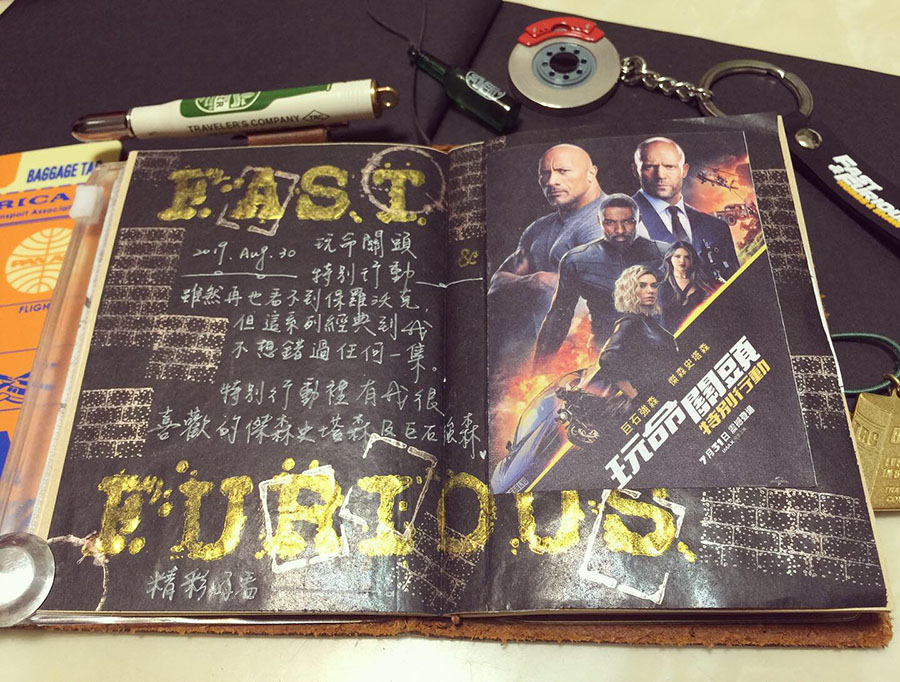 TRAVELER'S COMPANY TRC
BAGGAGE TA
RICA
nsport Associat
PAN A
FLIGH
FAST
&
FURIOUS
2019. Aug. 30 玩命關頭
特別行動
雖然再也看不到保羅沃克,
但這系列經典到我
不想錯過任何一集。
特別行動裡有我很
喜歡的傑森史塔森及巨石強森
精彩好看
傑森史塔森
巨石強森
玩命關頭
特別行動
7月31日
FAST
FURIOU
TRC